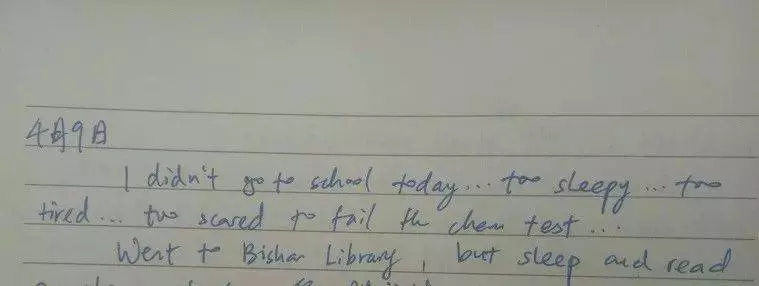 4月9日
I didn't go to school today... too sleepy... too
tired... too scared to fail th chem test...
Went to Bishan Library, but sleep and read